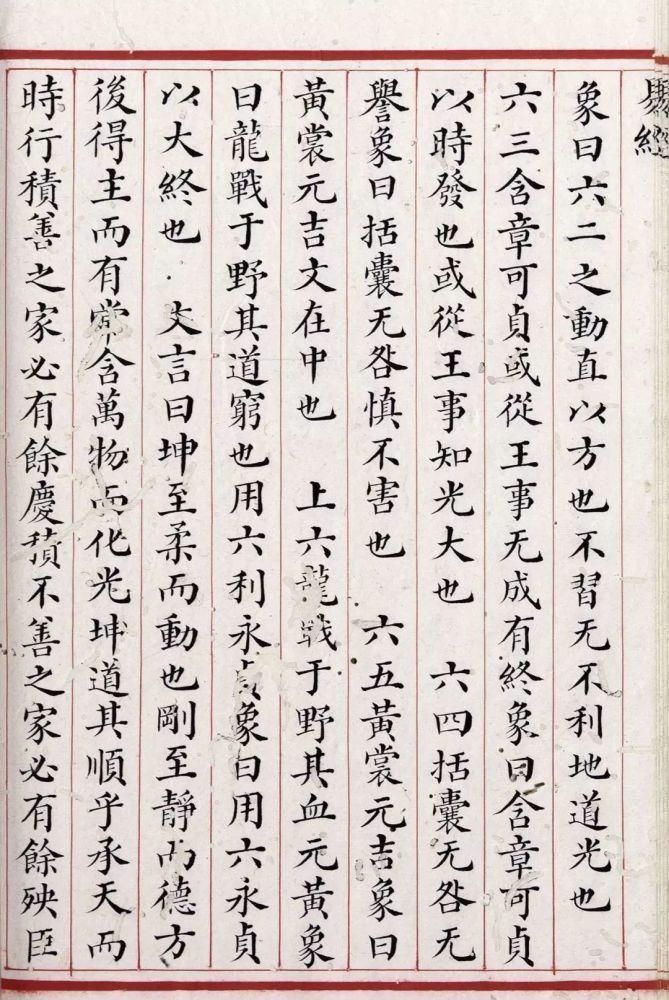 易經
象曰六二之動直以方也不習无不利地道光也
六三含章可貞或從王事无成有終象曰含章可貞
以時發也或從王事知光大也 六四括囊无咎无
譽象曰括囊无咎慎不害也 六五黃裳元吉象曰
黃裳元吉文在中也 上六龍戰于野其血元黃象
曰龍戰于野其道窮也用六利永貞象曰用六永貞
以大終也 文言曰坤至柔而動也剛至靜而德方
後得主而有常含萬物而化光坤道其順乎承天而
時行積善之家必有餘慶積不善之家必有餘殃臣